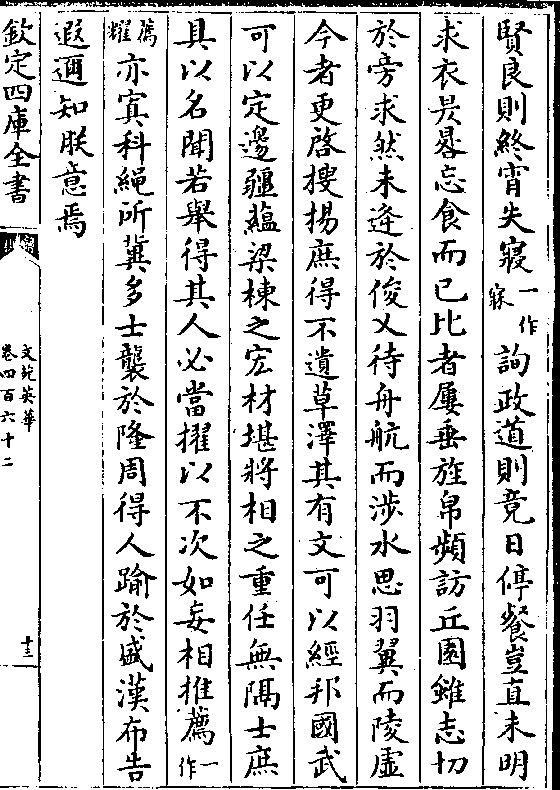 賢良則終宵失寢一作寐詢政道則竟日停餐豈直未明
求衣昃晷忘食而已比者屢垂旌帛頻訪丘園雖志切
於旁求然未逄於俊乂待舟航而涉水思羽翼而陵虛
今者更啓搜揚庶得不遺草澤其有文可以經邦國武
可以定邊疆蘊梁棟之宏材堪將相之重任無隔士庶
具以名聞若舉得其人必當擢以不次如妄相推薦一作
薦耀亦寘科繩所冀多士襲於隆周得人踰於盛漢布告
遐邇知朕意焉
欽定四庫全書
文苑英華
卷四百六十二
十三